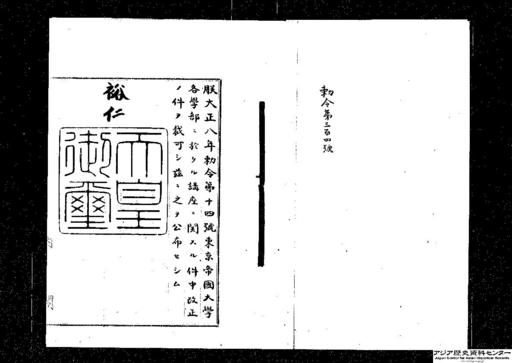 勅令第三百四號
朕大正八年勅令第十四號東京帝國大學
各學部ニ於クル講座ニ關スル件中改正
ノ件ヲ裁可シ茲ニ之ヲ公布セシム
裕仁
天皇
御璽
アジア歴史資料センター
Japan Center for Asian Historical Records